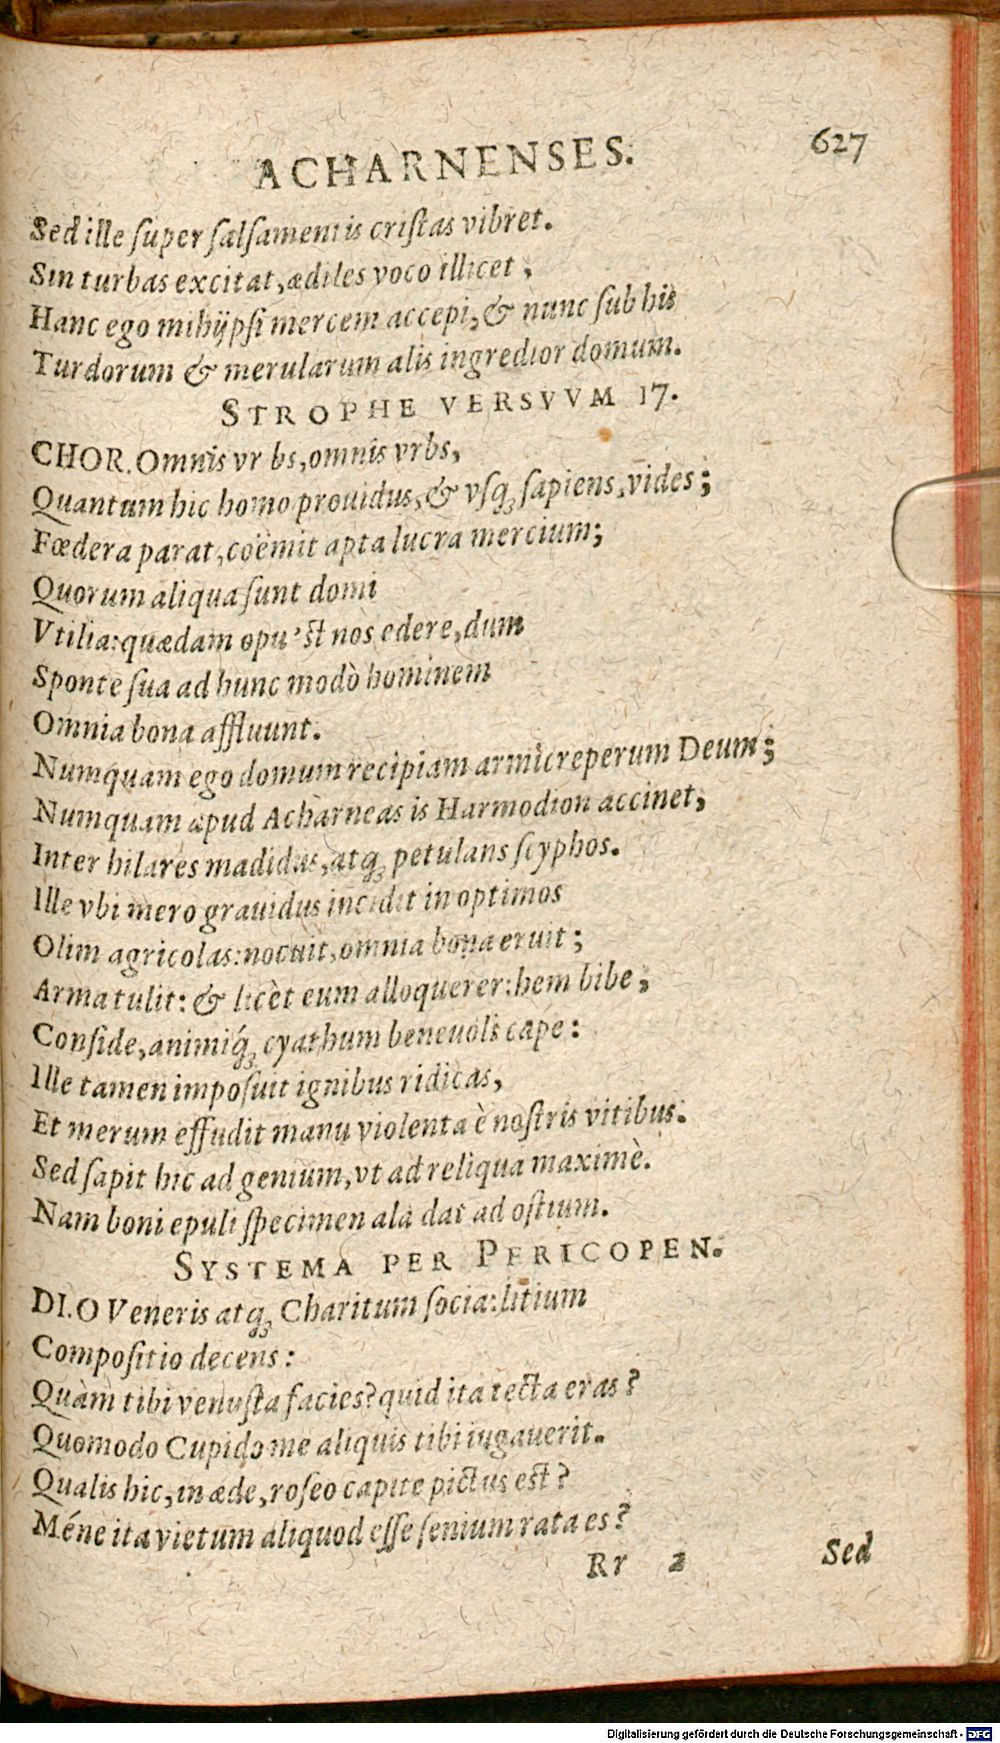 ACHARNENSES. 627
Sed ille ſuper ſalſamentis criſtas vibret.
Sin turbas excitat, ædiles voco illicet,
Hanc ego mihijpſi mercem accepi, & nunc ſub his
Turdorum & merularum alis ingredior domum.
STROPHE VERSVVM 17.
CHOR. Omnis vr bs, omnis vrbs,
Quantum hic homo prouidus, & vſq; ſapiens, vides;
Fœdera parat, coëmit apta lucra mercium;
Quorum aliqua ſunt domi
Vtilia: quædam opu'ſt nos edere, dum
Sponte ſua ad hunc modò hominem
Omnia bona affluunt.
Numquam ego domum recipiam armicreperum Deum;
Numquam apud Acharneas is Harmodion accinet,
Inter hilares madidus, atq; petulans ſcyphos.
Ille vbi mero grauidus incidit in optimos
Olim agricolas: nocuit, omnia bona eruit;
Arma tulit: & licèt eum alloquerer: hem bibe,
Conſide, animiq́; cyathum beneuoli cape:
Ille tamen impoſuit ignibus ridicas,
Et merum effudit manu violenta è noſtris vitibus.
Sed ſapit hic ad genium, vt ad reliqua maximè.
Nam boni epuli ſpecimen ala dat ad oſtium.
SYSTEMA PER PERICOPEN.
DI. O Veneris atq; Charitum ſocia: litium
Compoſitio decens:
Quàm tibi venuſta facies? quid ita tecta eras?
Quomodo Cupido me aliquis tibi iugauerit.
Qualis hic, in æde, roſeo capite pictus eſt?
Méne ita vietum aliquod eſſe ſenium rata es?
Rr 2 Sed
Digitalisierung gefördert durch die Deutsche Forschungsgemeinschaft - DFG